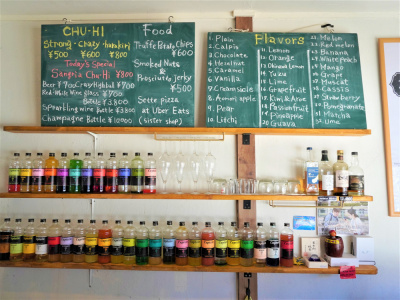 CHU-HI
Strong - Crazy - harakiri
¥500 ¥600 ¥800
Today's Special
Sangria Chu-Hi ¥800
Beer ¥700 Crazy Highball ¥800
Red・White Wine glass ¥750
Bottle ¥3.800
Sparkling wine bottle ¥3.800
Champagne bottle
Food
Truffe Potato Chips
¥600
Smoked Nuts
&
Prosciutto jerky
¥500
Sette pizza
at Uber Eats
(sister shop)
Flavors
1. Plain
2. Calpis
3. Chocolate
4. Hazelnut
5. Caramel
6. Vanilla
7. Creamsoda
8. apple
9. Pear
10. Litchi
11. Lemon
12. Orange
13. Okinawa Lemon
14. Yuzu
15. Lime
16. Grapefruit
17. Kiwi & Aloe
18. Passionfruit
19. Pineapple
20. Guava
21. Melon
22. Red melon
23. Banana
24. White Peach
25. Mango
26. Grape
27. Muscat
28. Cassis
29. Strawberry
30. Pomegranate
31. Matcha
32. Ume